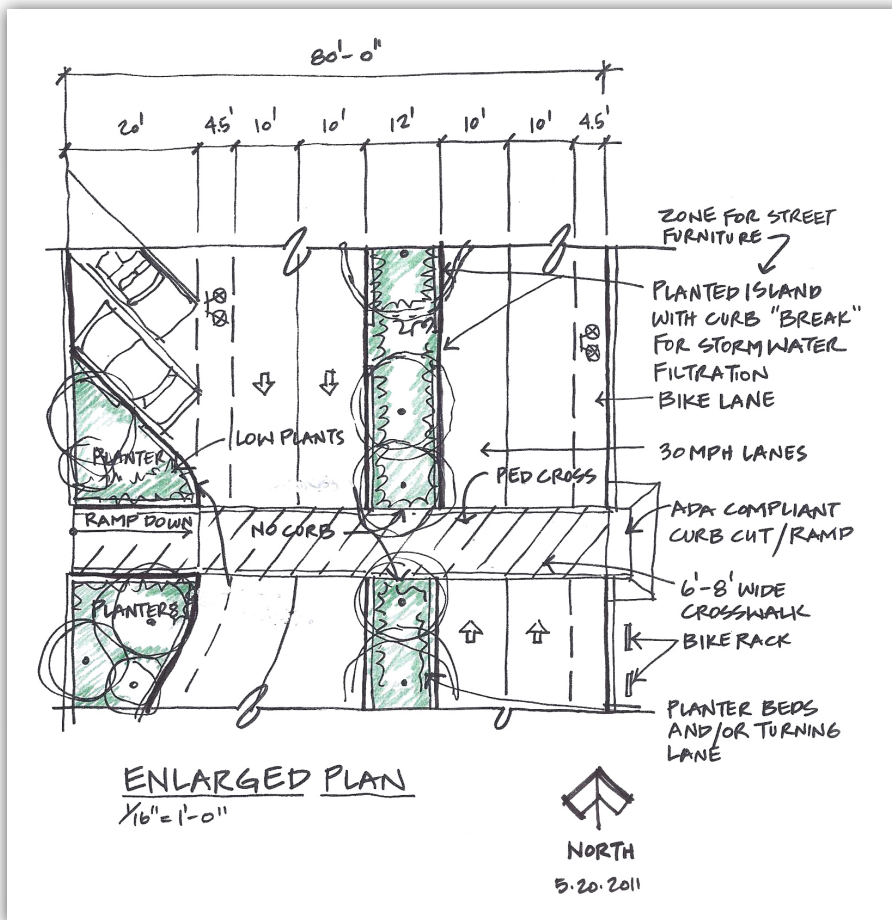 80'-0"
20' 4.5' 10' 10' 12' 10' 10' 4.5'
ZONE FOR STREET
FURNITURE
PLANTED ISLAND
WITH CURB "BREAK"
FOR STORMWATER
FILTRATION
BIKE LANE
LOW PLANTS
30 MPH LANES
PLANTER
PED CROSS
RAMP DOWN
NO CURB
ADA COMPLIANT
CURB CUT/RAMP
6'-8' WIDE
CROSSWALK
PLANTERS
BIKE RACK
PLANTER BEDS
AND/OR TURNING
LANE
ENLARGED PLAN
1/16" = 1'-0"
NORTH
5.20.2011